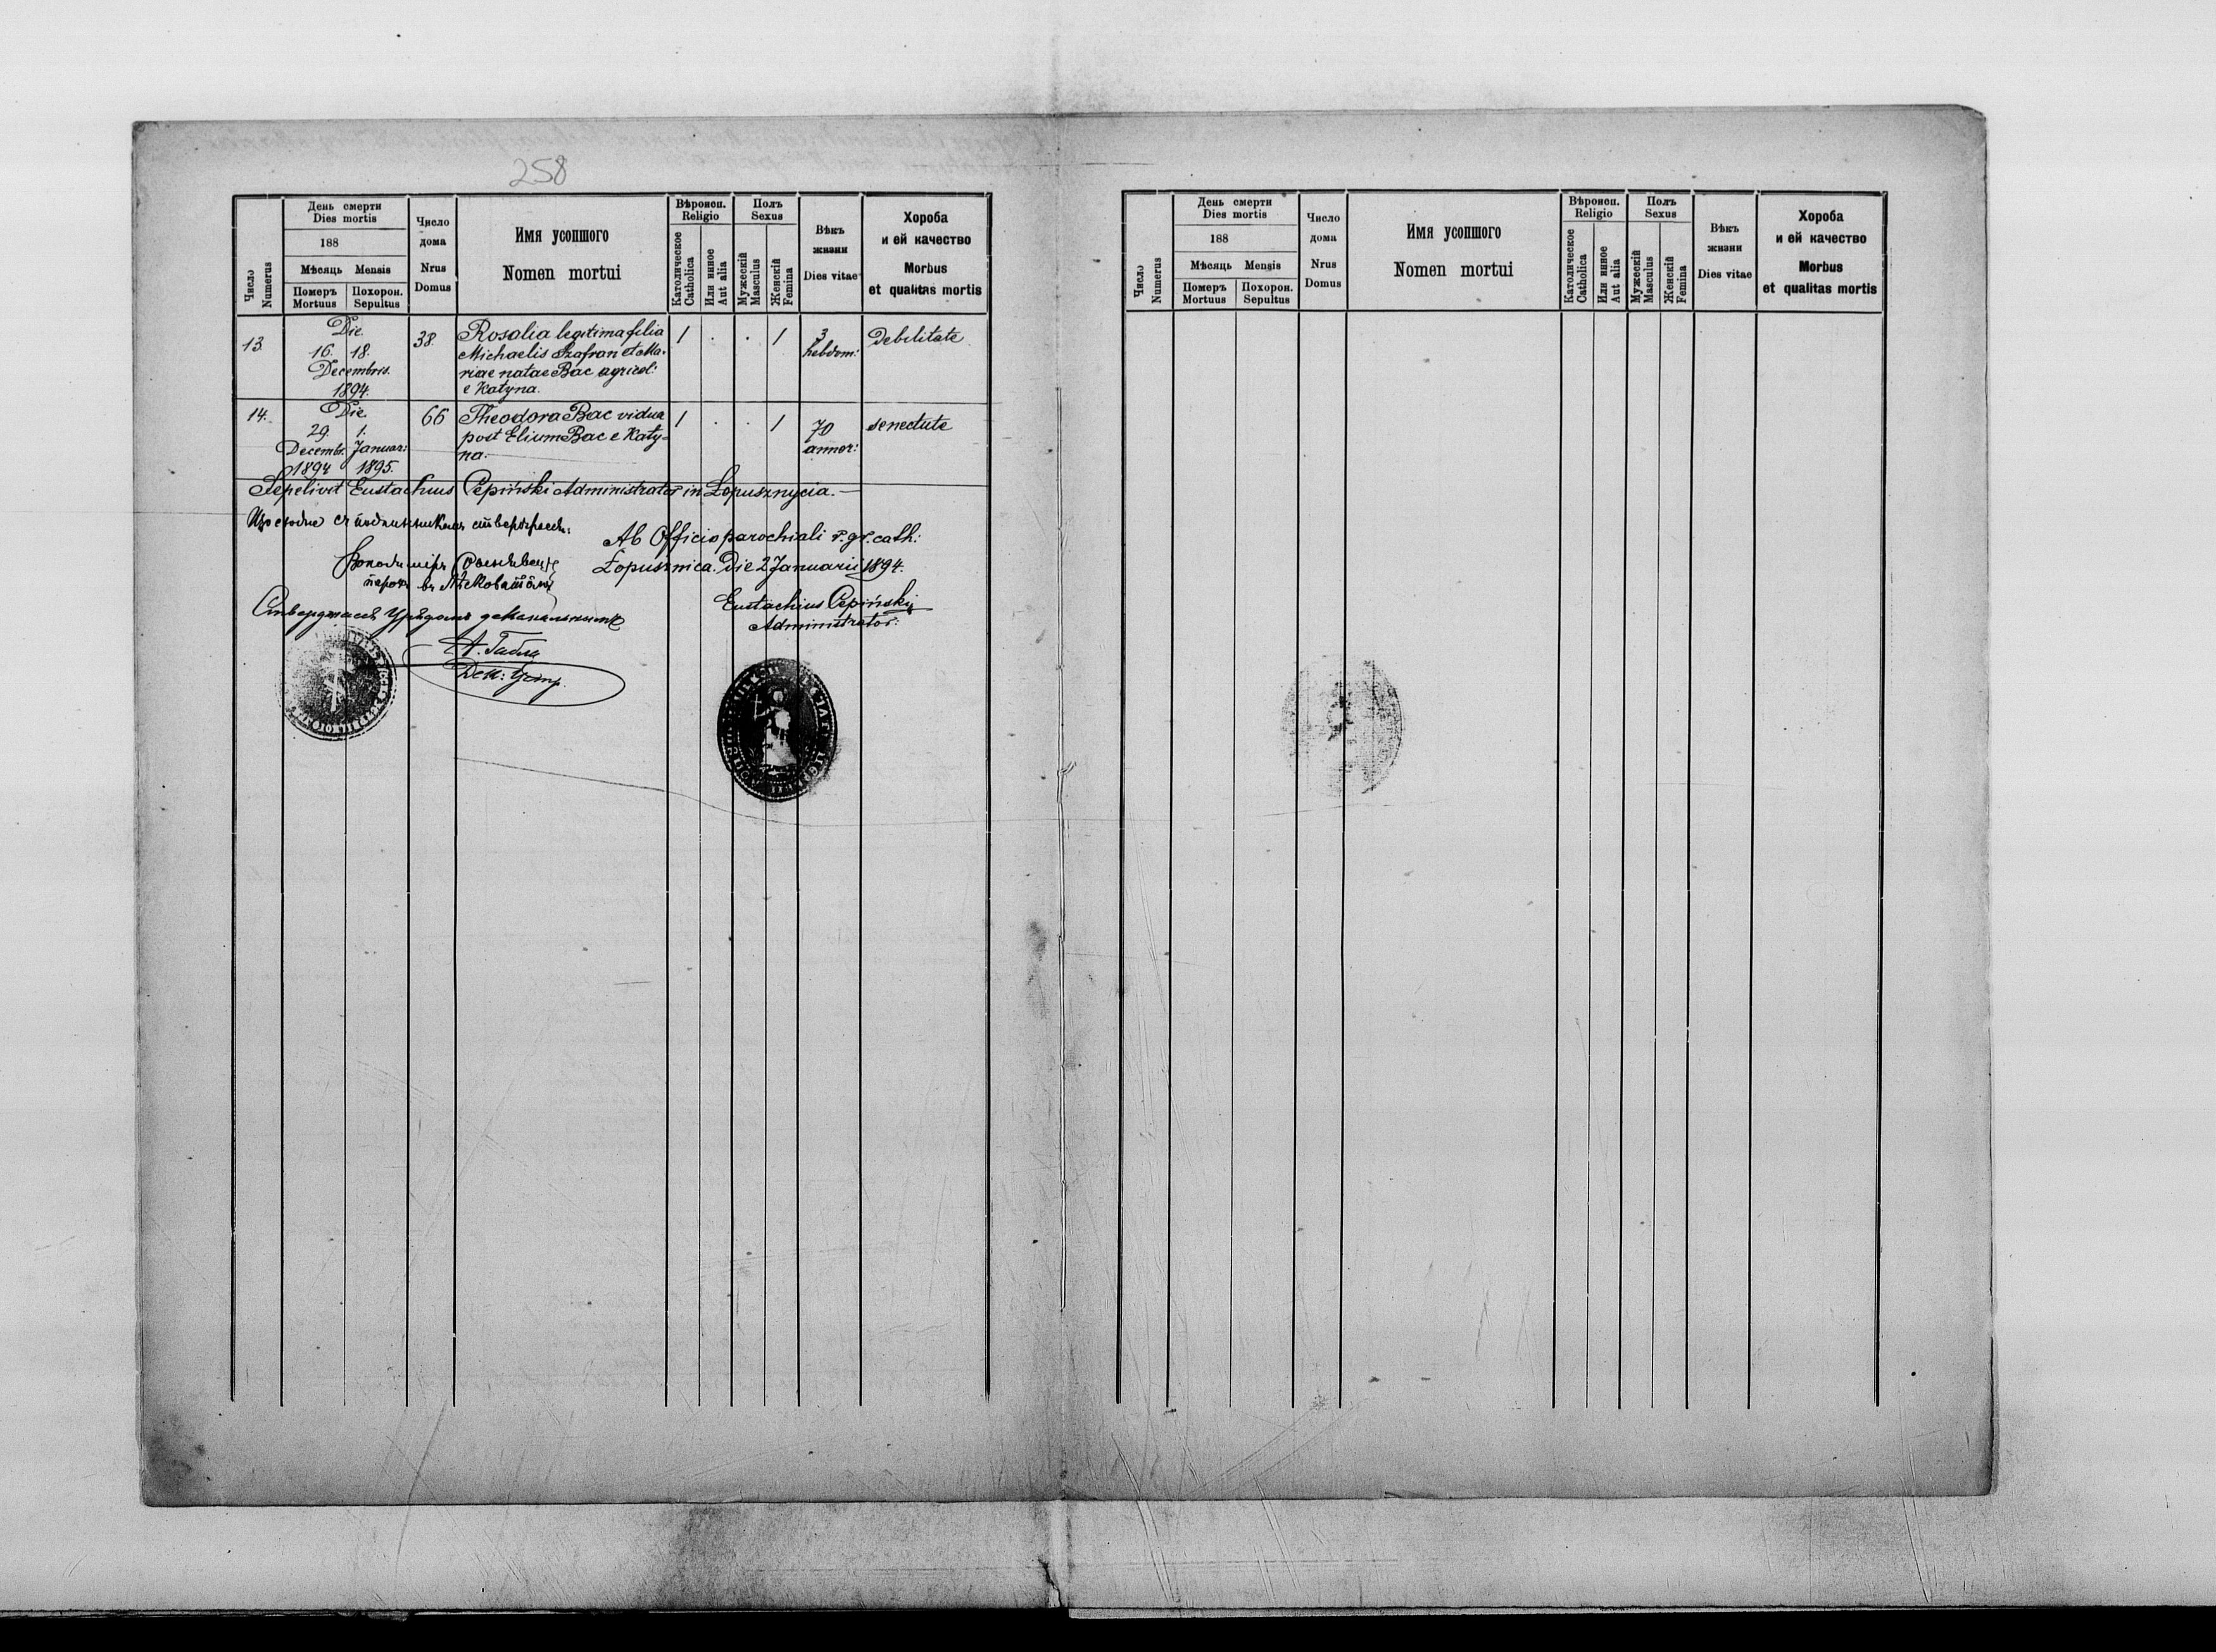 258
Число
Numerus
День смерти
Dies mortis
188
Мѣсяць Mensis
Померъ
Mortuus
Похорон.
Sepultus
Число
дома
Nrus
Domus
Имя усопшого
Nomen mortui
Вѣроисп.
Religio
Католическое
Catholica
Или инное
Aut alia
Полъ
Sexus
Мужескій
Masculus
Женскій
Femina
Вѣкъ
жизни
Dies vitae
Хороба
и ей качество
Morbus
et qualitas mortis
13.
Die
16. 18.
Decembris.
1894.
38.
Rosalia legitima filia
Michaelis Szafran et Ma-
riae natae Bac agricol:
e Katyna.
1 . . 1
3
hebdom:
Debilitate
14.
Die
29. 1.
Decembr. Januar:
1894 1895.
66
Theodora Bac vidua
post Elium Bac e Katy-
na.
1 . . 1
70
annor:
senectute
Sepelivit Eustachius Pepiński Administrator in Łopusznycia.
Ab Officio parochiali r. gr. cath:
Łopusznica. Die 2 Januarii 1894.
Eustachius Pepiński
Administrator:
парохъ въ
Стверджаесъ Урядомъ деканальнымъ
Число
Numerus
День смерти
Dies mortis
188
Мѣсяць Mensis
Померъ
Mortuus
Похорон.
Sepultus
Число
дома
Nrus
Domus
Имя усопшого
Nomen mortui
Вѣроисп.
Religio
Католическое
Catholica
Или инное
Aut alia
Полъ
Sexus
Мужескій
Masculus
Женскій
Femina
Вѣкъ
жизни
Dies vitae
Хороба
и ей качество
Morbus
et qualitas mortis